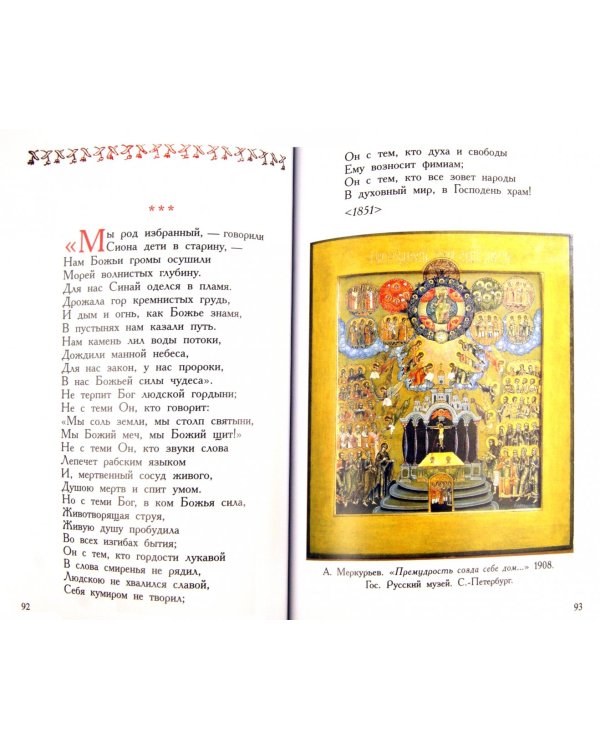 ***
«Мы род избранный, — говорили
Сиона дети в старину, —
Нам Божьи громы осушили
Морей волнистых глубину.
Для нас Синай оделся в пламя.
Дрожала гор кремнистых грудь,
И дым и огнь, как Божье знамя,
В пустынях нам казали путь.
Нам камень лил воды потоки,
Дождили манной небеса,
Для нас закон, у нас пророки,
В нас Божьей силы чудеса».
Не терпит Бог людской гордыни;
Не с теми Он, кто говорит:
«Мы соль земли, мы столп святыни,
Мы Божий меч, мы Божий щит!»
Не с теми Он, кто звуки слова
Лепечет рабским языком
И, мертвенный сосуд живого,
Душою мертв и спит умом.
Но с теми Бог, в ком Божья сила,
Животворящая струя,
Живую душу пробудила
Во всех изгибах бытия;
Он с тем, кто гордости лукавой
В слова смиренья не рядил,
Людскою не хвалился славой,
Себя кумиром не творил;
92
Он с тем, кто духа и свободы
Ему возносит фимиам;
Он с тем, кто все зовет народы
В духовный мир, в Господень храм!
<1851>
А. Меркурьев. «Премудрость созда себе дом...» 1908.
Гос. Русский музей. С.-Петербург.
93